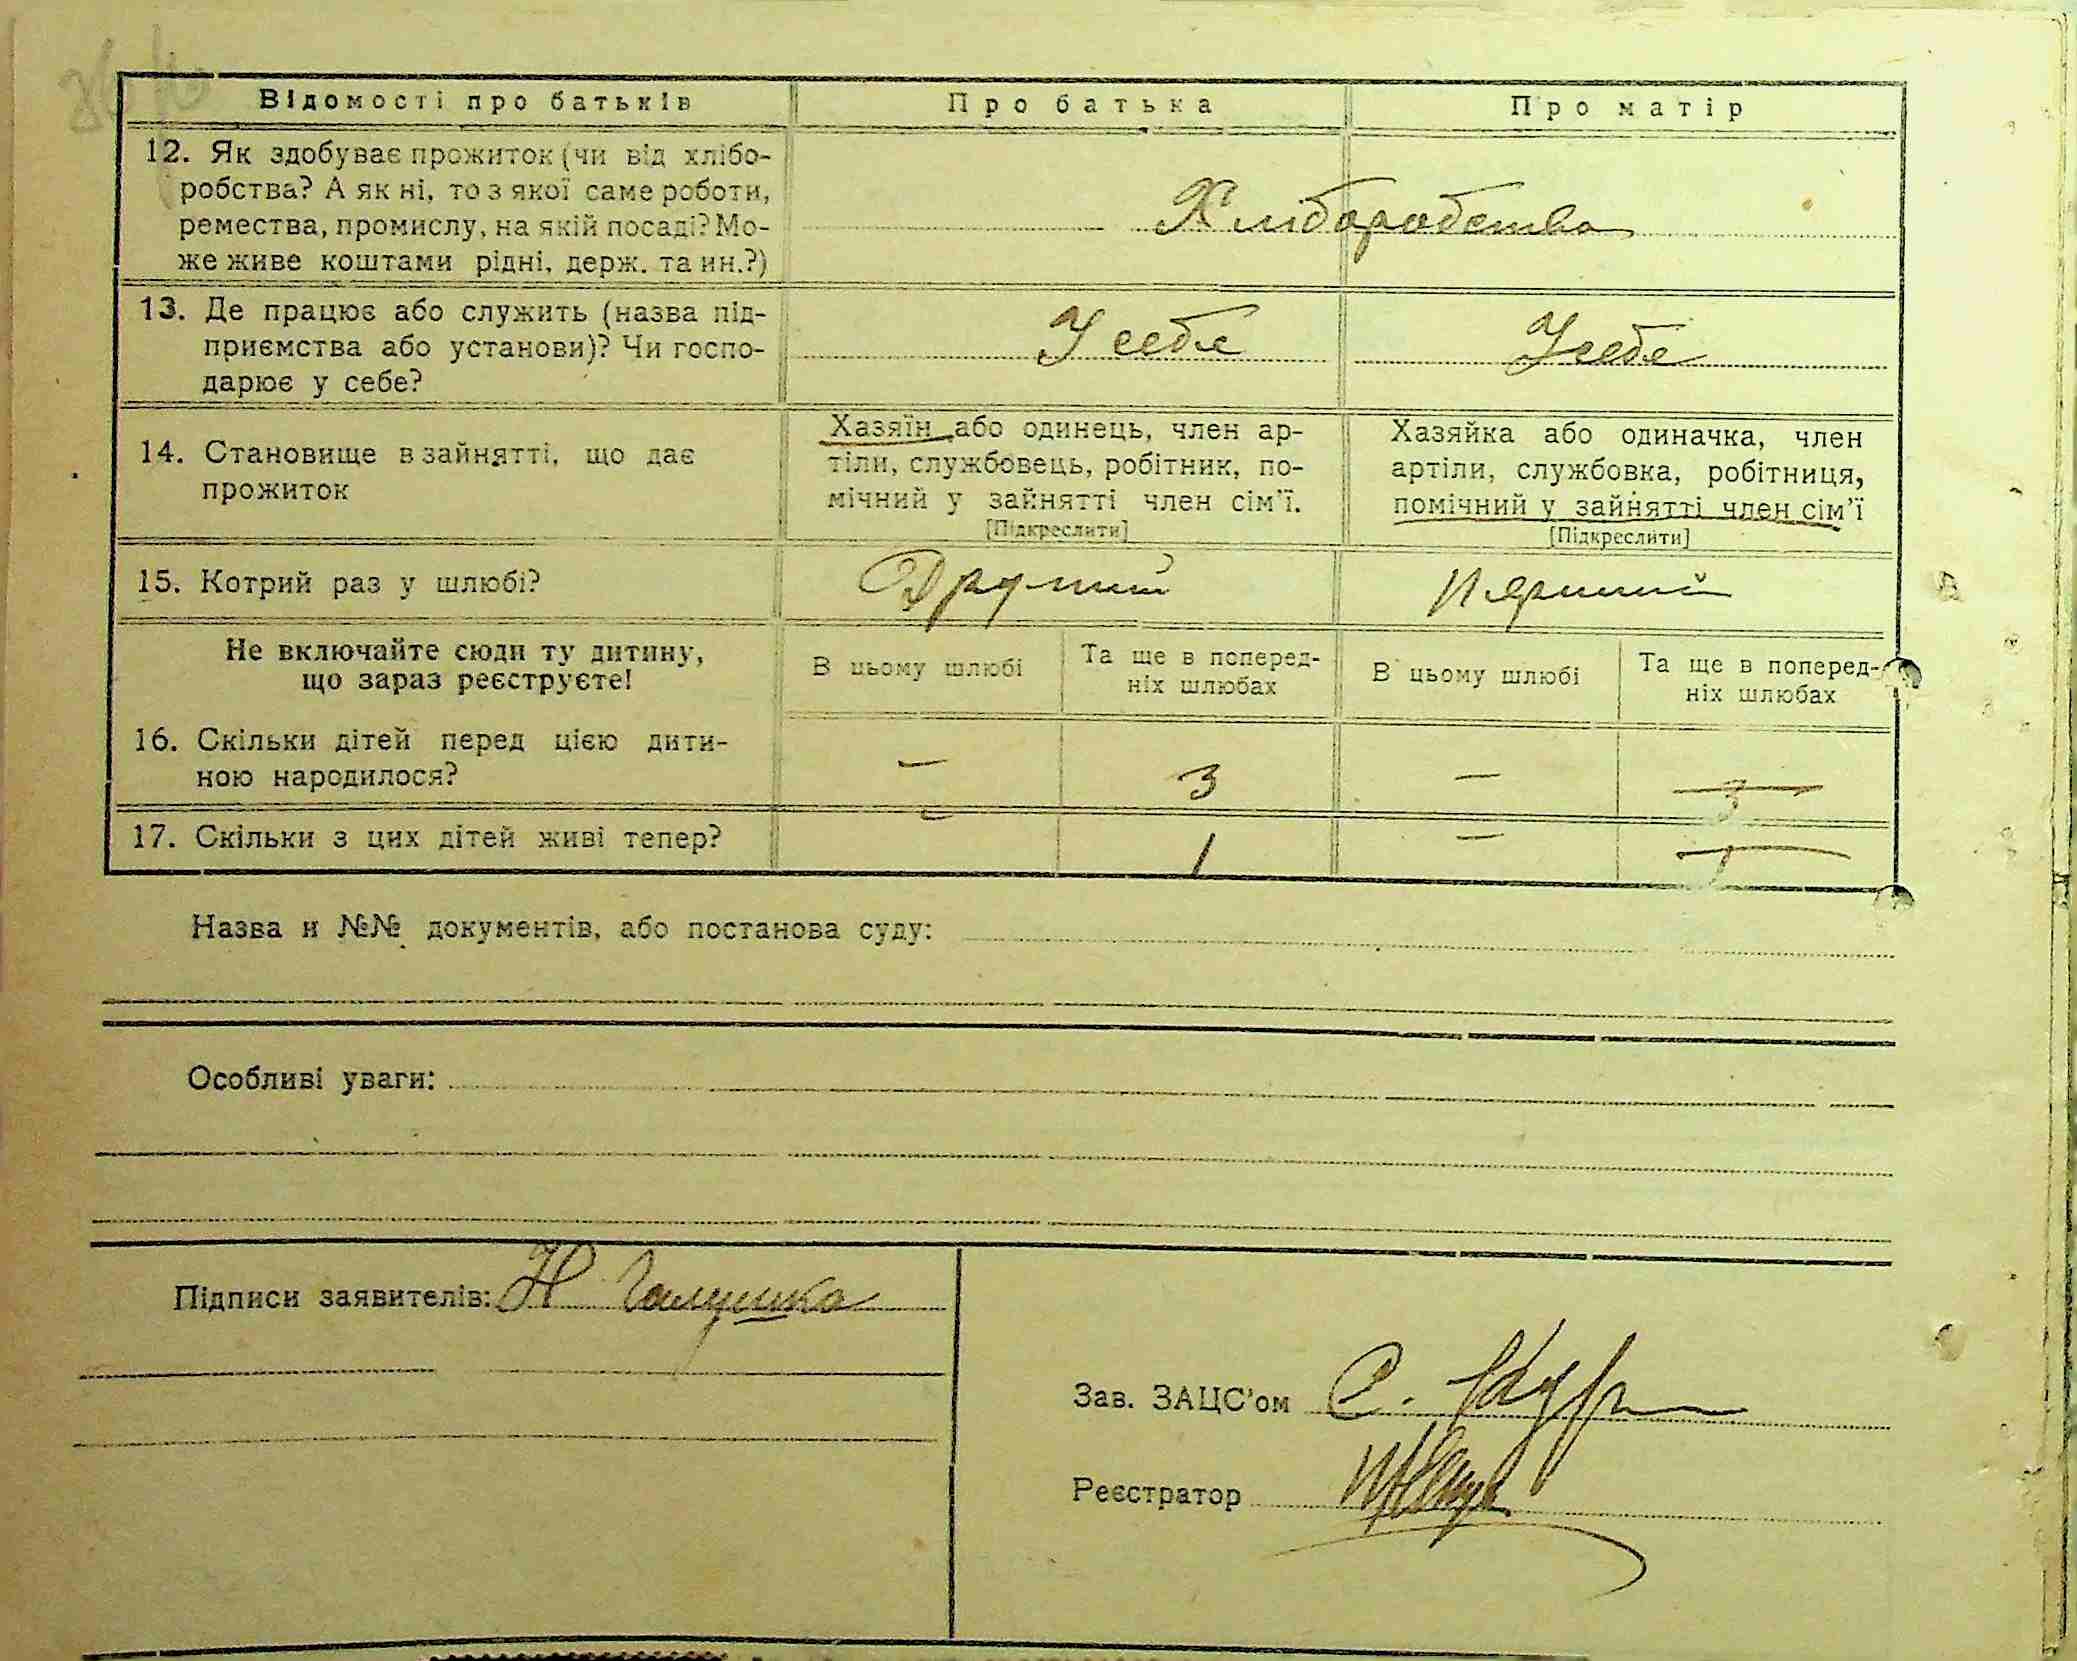 Відомості про батьків
Про батька
Про матір
12. Як здобуває прожиток (чи від хлібо-
робства? А як ні, то з якої саме роботи,
ремества, промислу, на якій посаді? Мо-
же живе коштами рідні, держ. та ин.?)
Хліборобство
13. Де працює або служить (назва під-
приємства або установи)? Чи госпо-
дарює у себе?
У себе
У себе
14. Становище в зайнятті, що дає
прожиток
Хазяїн або одинець, член ар-
тіли, службовець, робітник, по-
мічний у зайнятті член сім'ї.
[Підкреслити]
Хазяйка або одиначка, член
артіли, службовка, робітниця,
помічний у зайнятті член сім'ї
[Підкреслити]
15. Котрий раз у шлюбі?
Другий
Перший
Не включайте сюди ту дитину,
що зараз реєструєте!
В цьому шлюбі
Та ще в поперед-
ніх шлюбах
В цьому шлюбі
Та ще в поперед-
ніх шлюбах
16. Скільки дітей перед цією дити-
ною народилося?
– 3 – 3
17. Скільки з цих дітей живі тепер?
– 1 – 1
Назва и №№ документів, або постанова суду:
Особливі уваги:
Підписи заявителів: Н Галушка
Зав. ЗАЦС'ом С.
Реєстратор